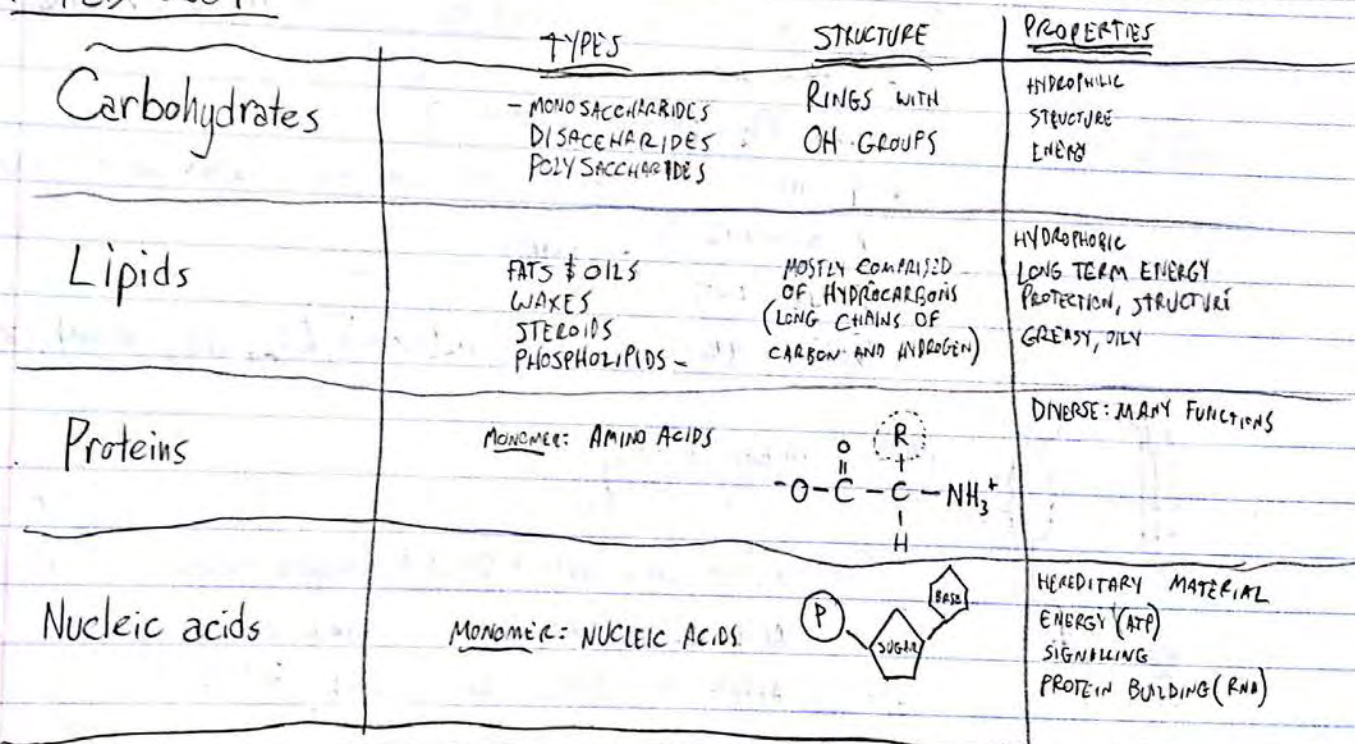 TYPES STRUCTURE PROPERTIES
Carbohydrates
- MONOSACCHARIDES
DISACCHARIDES
POLYSACCHARIDES
RINGS WITH
OH GROUPS
HYDROPHILIC
STRUCTURE
ENERGY
Lipids
FATS & OILS
WAXES
STEROIDS
PHOSPHOLIPIDS -
MOSTLY COMPRISED
OF HYDROCARBONS
(LONG CHAINS OF
CARBON AND HYDROGEN)
HYDROPHOBIC
LONG TERM ENERGY
PROTECTION, STRUCTURE
GREASY, OILY
Proteins
MONOMER: AMINO ACIDS
O R
-O-C-C-NH3+
H
DIVERSE: MANY FUNCTIONS
Nucleic acids
MONOMER: NUCLEIC ACIDS
P
SUGAR
BASE
HEREDITARY MATERIAL
ENERGY (ATP)
SIGNALLING
PROTEIN BUILDING (RNA)